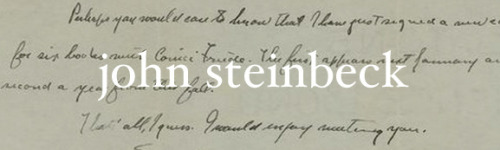 Perhaps you would care to know that I have just signed a new co
for six books with Covici Friede. The first appears next January an
second a year from this fall.
john steinbeck
That's all, I guess. I would enjoy meeting you.